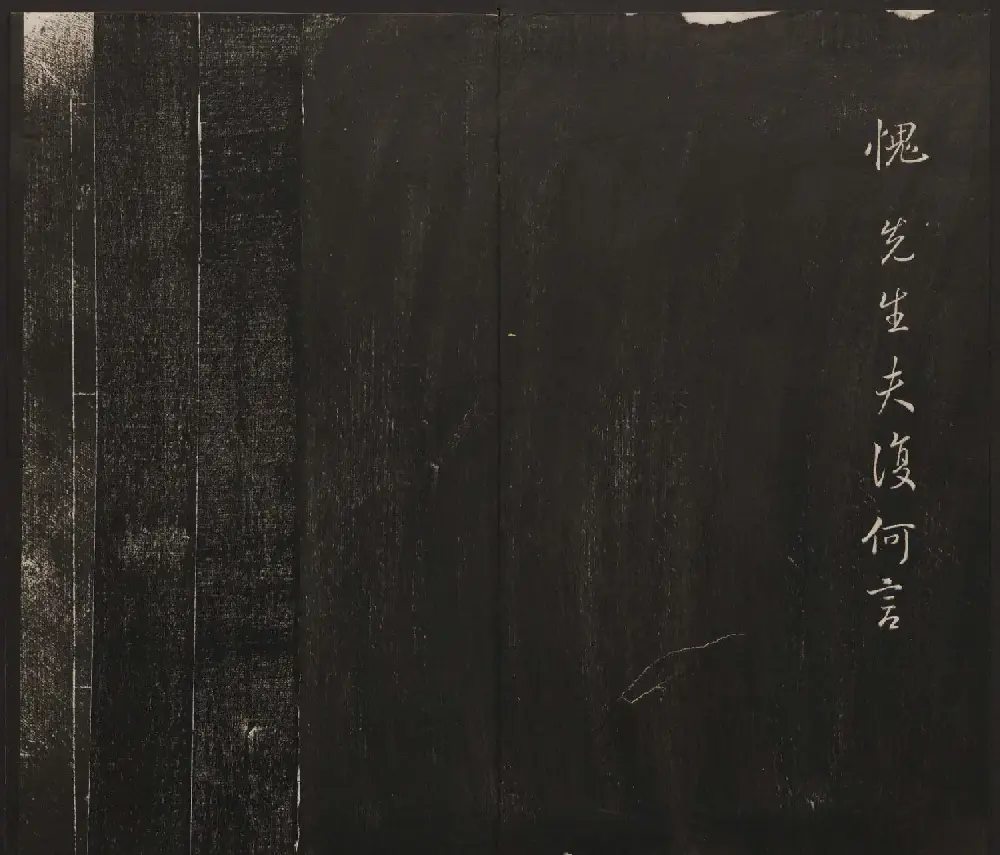 愧先生夫復何言